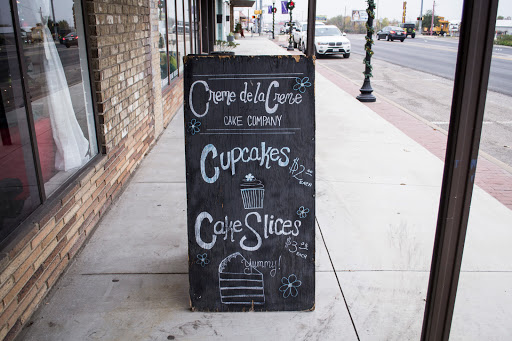 Creme de la Creme
CAKE COMPANY
Cupcakes
$2
EACH
Cake Slices
$3
EACH
Yummy!